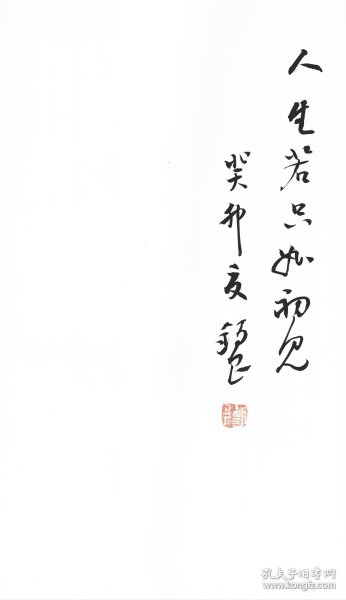 人生若只如初见
癸卯夏
孔夫子旧书网